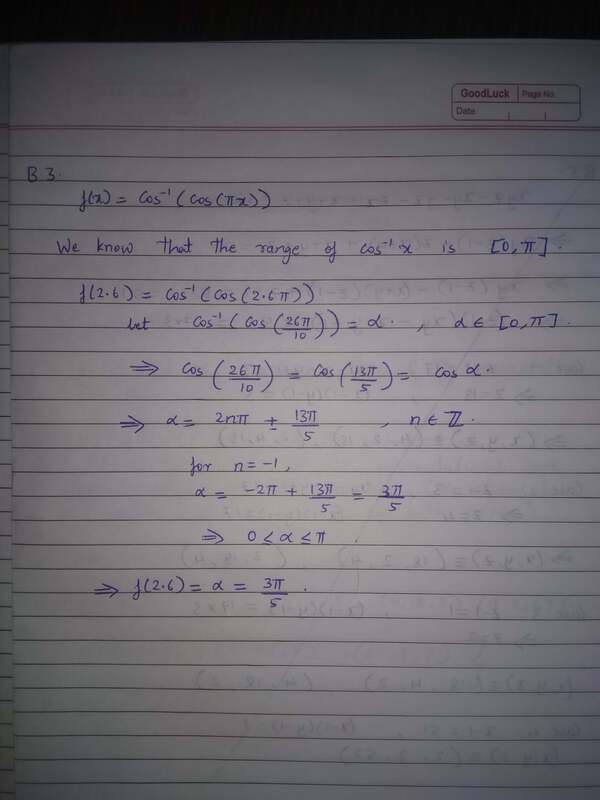 GoodLuck Page No.
Date
B 3.
f(x) = Cos⁻¹(Cos(πx))
We know that the range of Cos⁻¹x is [0,π].
f(2.6) = Cos⁻¹(Cos(2.6π))
let Cos⁻¹(Cos(26π/10)) = α. , α ∈ [0,π].
⟹ Cos(26π/10) = Cos(13π/5) = Cos α.
⟹ α = 2nπ ± 13π/5 , n ∈ ℤ.
for n = -1,
α = -2π + 13π/5 = 3π/5
⟹ 0 ≤ α ≤ π .
⟹ f(2.6) = α = 3π/5 .